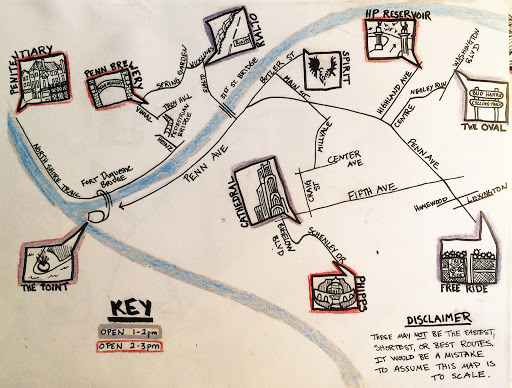 PENITENTIARY
PENN BREWERY
RIALTO
HP RESERVOIR
SPIRIT
WASHINGTON
BLVD
SPRING GARDEN
RIALTO
31ST ST. BRIDGE
BUTLER ST
MAIN ST
HIGHLAND AVE
NEGLEY RUN
BUD HARRIS
CYCLING TRACK
THE OVAL
VINIAL
TROY HILL
PEDESTRIAN
BRIDGE
CENTRE
PENN AVE
MILLVALE
CENTER
AVE
NORTH SHORE TRAIL
FORT DUQUESNE
BRIDGE
PENN AVE
CATHEDRAL
CRAIG
ST
FIFTH AVE
HOMEWOOD
LEXINGTON
BIGELOW
BLVD
SCHENLEY DR
THE POINT
PHIPPS
FREE RIDE
KEY
OPEN 1-2pm
OPEN 2-3pm
DISCLAIMER
THESE MAY NOT BE THE FASTEST,
SHORTEST, OR BEST ROUTES.
IT WOULD BE A MISTAKE
TO ASSUME THIS MAP IS
TO SCALE.